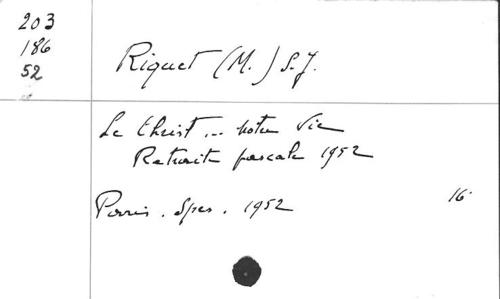 203
186
52
Riquet (M.) S.J.
Le Christ... notre Vie
Retraite pascale 1952
Paris. Spes. 1952
16°